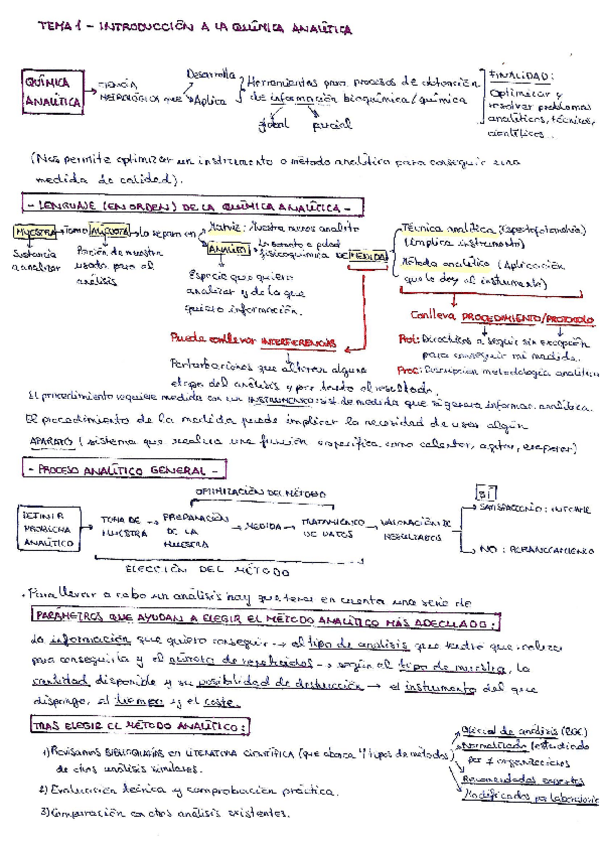 TEMA 1 - INTRODUCCIÓN A LA QUÍMICA ANALÍTICA
QUÍMICA ANALÍTICA → CIENCIA METROLÓGICA que
Desarrolla
Aplica
Herramientas para procesos de obtención
de información bioquímica/química
global parcial
FINALIDAD:
Optimizar y
resolver problemas
analíticos, técnicos,
científicos...
(Nos permite optimizar un instrumento o método analítico para conseguir una
medida de calidad).
- LENGUAJE (EN ORDEN) DE LA QUÍMICA ANALÍTICA -
MUESTRA → Tomo ALÍCUOTA → la separo en
Sustancia
a analizar
Porción de muestra
usada para el
análisis
Matriz: Muestra menos analito
ANALITO
fisicoquímica DE MEDIDA
Especie que quiero
analizar y de la que
quiero información.
Técnica analítica (Espectrofotometría)
(Implica instrumento)
Método analítico (Aplicación
que le doy al instrumento)
Conlleva PROCEDIMIENTO/PROTOCOLO
Prot: Directrices a seguir sin excepción
para conseguir mi medida.
Proc: Descripción metodología analítica
Puede conllevar INTERFERENCIAS
Perturbaciones que alteran alguna
etapa del análisis y por tanto el resultado.
El procedimiento requiere medida con un INSTRUMENTO: sist de medida que genera informac. analítica.
El procedimiento de la medida puede implicar la necesidad de usar algún
APARATO (sistema que realiza una función específica como calentar, agitar, evaporar)
- PROCESO ANALÍTICO GENERAL -
OPTIMIZACIÓN DEL MÉTODO
DEFINIR PROBLEMA ANALÍTICO → TOMA DE MUESTRA → PREPARACIÓN DE LA MUESTRA → MEDIDA → TRATAMIENTO DE DATOS → VALORACIÓN DE RESULTADOS
SI
SATISFACTORIO: INFORME
NO: REPLANTEAMIENTO
ELECCIÓN DEL MÉTODO
· Para llevar a cabo un análisis hay que tener en cuenta una serie de
PARÁMETROS QUE AYUDAN A ELEGIR EL MÉTODO ANALÍTICO MÁS ADECUADO:
La información que quiero conseguir → el tipo de análisis que tendré que realizar
para conseguirla y el número de resultados → según el tipo de muestra, la
cantidad disponible y su posibilidad de destrucción → el instrumento del que
dispongo, el tiempo y el coste.
TRAS ELEGIR EL MÉTODO ANALÍTICO:
1) Revisamos BIBLIOGRAFÍAS en LITERATURA CIENTÍFICA (que abarca 4 tipos de métodos)
de otros análisis similares.
Oficial de análisis
Normalizado (estudiado
por ≠ organizaciones
Recomendados expertos
Modificados por laboratorio
2) Evaluación teórica y comprobación práctica.
3) Comparación con otros análisis existentes.